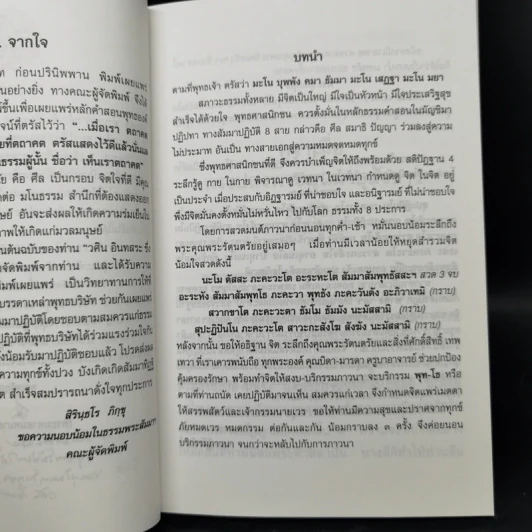 . จากใจ
ท ก่อนปรินิพพาน พิมพ์เผยแพร่
อย่างยิ่ง ทางคณะผู้จัดพิมพ์ จึงได้
ขึ้นเพื่อเผยแพร่หลักคำสอนพุทธองค์
จน์ที่ตรัสไว้ว่า "...เมื่อเรา ตถาคต
ยที่ตถาคต ตรัสแสดงไว้แล้วนั่นแล
ธรรมผู้นั้น ชื่อว่า เห็นเราตถาคต"
ย คือ ศีล เป็นกรอบ จิตใจที่ดี มีคุณ
ต่อ มโนธรรม สำนึกที่ต้องแสดงออก
นุษย์ อันจะส่งผลให้เกิดความร่มเย็นใน
ภาพให้เกิดแก่มวลมนุษย์
นต้นฉบับของท่าน "วศิน อินทสระ ซึ่ง
จัดพิมพ์จากท่าน และได้รับความ
บรรดาเหล่าพุทธบริษัท ช่วยกันเผยแพร่
มาปฏิบัติโดยชอบตามสมควรแก่ธรรม
ปฏิบัติที่พุทธบริษัทได้ร่วมแรงร่วมใจกัน
น้อมรับมาปฏิบัติชอบแล้ว โปรดส่งผล
ความทุกข์ทั้งปวง บังเกิดเกิดสัมมาทิฏฐิ
ต สำเร็จสมปรารถนาดั่งใจทุกประการ
สิรินฺธโร ภิกฺขุ
ขอความนอบน้อมในธรรมพระสัมมา
คณะผู้จัดพิมพ์
บทนำ
ตามที่พุทธเจ้า ตรัสว่า มะโน บุพพัง คมา ธัมมา มะโน เสฏฐา มะโน มยา
สภาวะธรรมทั้งหลาย มีจิตเป็นใหญ่ มีใจเป็นหัวหน้า มีใจประเสริฐสุข
สำเร็จได้ด้วยใจ พุทธศาสนิกชน ควรตั้งมั่นในหลักคำสอนในมัญชิมา
ปฏิปทา ทางสัมมาปฏิบัติ 8 สาย กล่าวคือ ศีล สมาธิ ปัญญา ร่วมลงสู่ความ
ไม่ประมาท อันเป็น ทางสายเอกสู่ความหมดจดหมดทุกข์
ซึ่งพุทธศาสนิกชนที่ดี จึงควรบำเพ็ญจิตให้ถึงพร้อมด้วย สติปัฏฐาน 4
ระลึกรู้ดู กาย ในกาย พิจารณาดู เวทนา ในเวทนา กำหนดดู จิต ในจิต อยู่
เป็นประจำ เมื่อประสบกับอิฏฐารมย์ ที่น่าชอบใจ และอนิฐารมย์ ที่ไม่น่าชอบใจ
พึงมีจิตมั่นคงตั้งมั่นไม่หวั่นไหว ไปกับโลก ธรรมทั้ง 8 ประการ
โดยการสวดมนต์ภาวนาก่อนนอนทุกค่ำ-เช้า หมั่นนอบน้อมระลึกถึง
พระคุณพระรัตนตรัยอยู่เสมอๆ เมื่อท่านมีเวลาน้อยให้หยุดสำรวมจิต
น้อมใจสวดดังนี้
นะโม ตัสสะ ภะคะวะโต อะระหะโต สัมมาสัมพุทธัสสะฯ สวด 3 จบ
อะระหัง สัมมาสัมพุทโธ ภะคะวา พุทธัง ภะคะวันตัง อะภิวาเทมิ (กราบ)
สวากขาโต ภะคะวะตา ธัมโม ธัมมัง นะมัสสามิ (กราบ)
สุปะฏิปันโน ภะคะวะโต สาวะกะสังโฆ สังฆัง นะมัสสามิ (กราบ)
หลังจากนั้น ขอให้อธิฐาน จิต ระลึกถึงคุณพระรัตนตรัยและสิ่งที่ศักดิ์สิทธิ์ เทพ
เทวา ที่เราเคารพนับถือ ทุกพระองค์ คุณบิดา-มารดา ครูบาอาจารย์ ช่วยปกป้อง
คุ้มครองรักษา พร้อมทำจิตให้สงบ-บริกรรมภาวนา จะบริกรรม พุท-โธ หรือ
ตามที่ท่านถนัด เคยปฏิบัติมาจนเห็น สมควรแก่เวลา จึงกำหนดจิตแผ่เมตตา
ให้สรรพสัตว์และเจ้ากรรมนายเวร ขอให้ท่านมีความสุขและปราศจากทุกข์
ภัยหมดเวร หมดกรรม ต่อกันและกัน น้อมกราบลง ๓ ครั้ง จึงค่อยนอน
บริกรรมภาวนา จนกว่าจะหลับไปกับการภาวนา